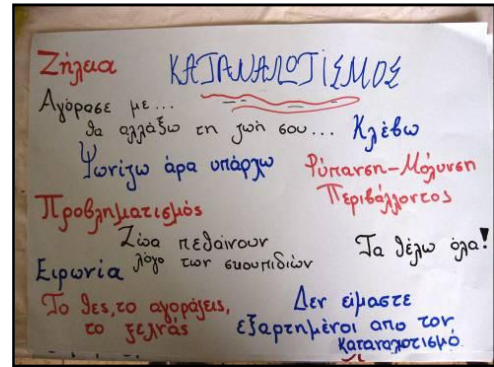 Ζήλεια
ΚΑΤΑΝΑΛΩΤΙΣΜΟΣ
Αγόρασε με...
θα αλλάξω τη ζωή σου...
Κλέβω
Ψωνίζω άρα υπάρχω
Ρύπανση-Μόλυνση
Περιβάλλοντος
Προβληματισμός
Ζώα πεθαίνουν
λόγο των σκουπιδιών
Τα θέλω όλα!
Ειρωνία
Το θες, το αγοράζεις,
το ξεχνάς
Δεν είμαστε
εξαρτημένοι απο τον
καταναλοτισμό